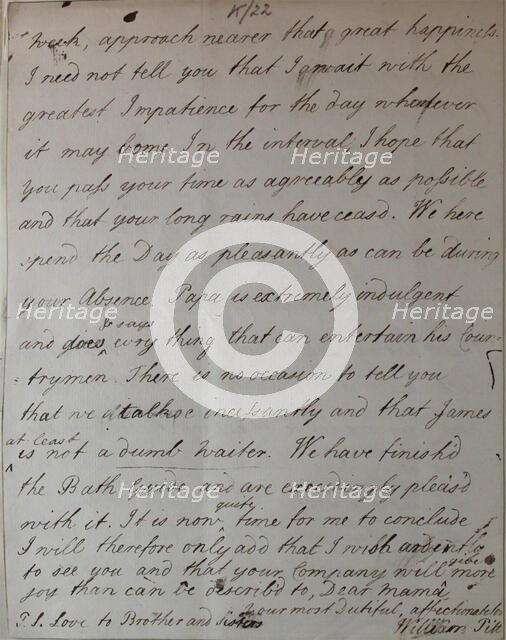 K/22
week, approach nearer that great happiness.
I need not tell you that I await with the
greatest Impatience for the day whenever
it may come. In the interval, I hope that
you pass your time as agreeably as possible
and that your long rains have ceasd. We here
spend the Day as pleasantly as can be during
your Absence. Papa is extremely indulgent
& says
and does evry thing that can entertain his Coun-
trymen. There is no occasion to tell you
that we talk incessantly and that James
at least
is not a dumb Waiter. We have finish'd
the Bath Guide and are exceedingly pleas'd
quite
with it. It is now time for me to conclude
I will therefore only add that I wish ardently
to see you and that your Company will give more
joy than can be describ'd to, Dear Mama,
your most Dutiful, affectionate
P.S. Love to Brother and Sisters
William Pitt
Heritage
Heritage
Heritage
Heritage
Heritage
Heritage
Heritage
Heritage
Heritage
Heritage
C